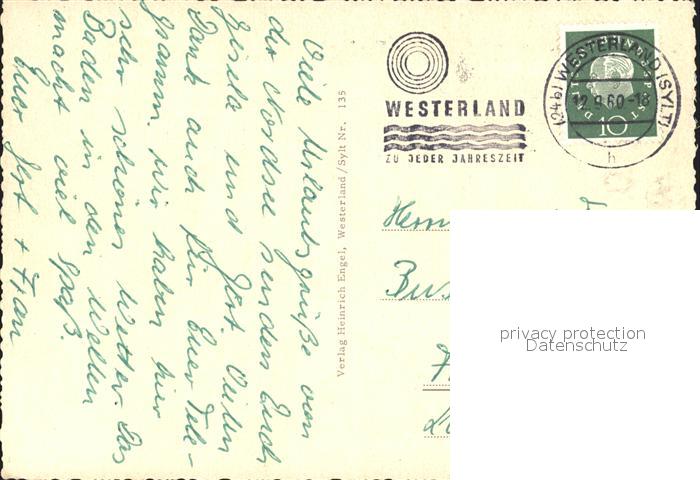 Viele Urlaubsgrüße von
der Nordsee senden Euch
Gisela und Gört. Vielen
Dank auch für Euer Tele-
gramm. Wir haben hier
sehr schönes Wetter. Das
Baden in den Wellen
macht viel Spaß.
Euer + Frau
Verlag Heinrich Engel, Westerland/Sylt Nr. 135
WESTERLAND
ZU JEDER JAHRESZEIT
(24b) WESTERLAND (SYLT)
12.9.60-18
h
10
Herrn
privacy protection
Datenschutz